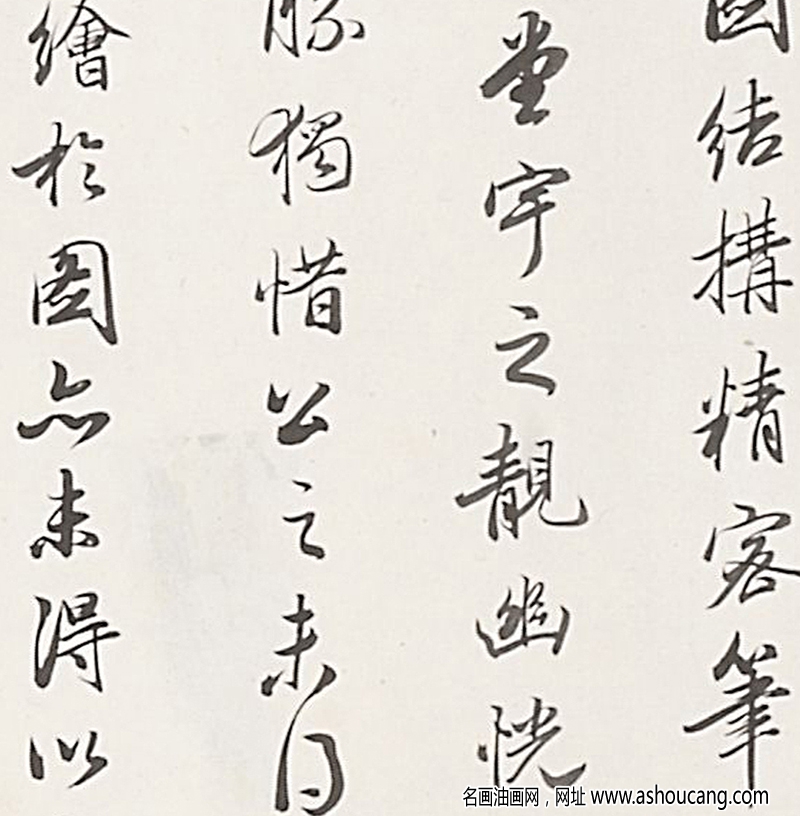 圖結構精密筆
堂宇之靚幽恍
勝獨惜公之未得
繪於圖亦未得以
名画油画网，网址 www.ashoucang.com